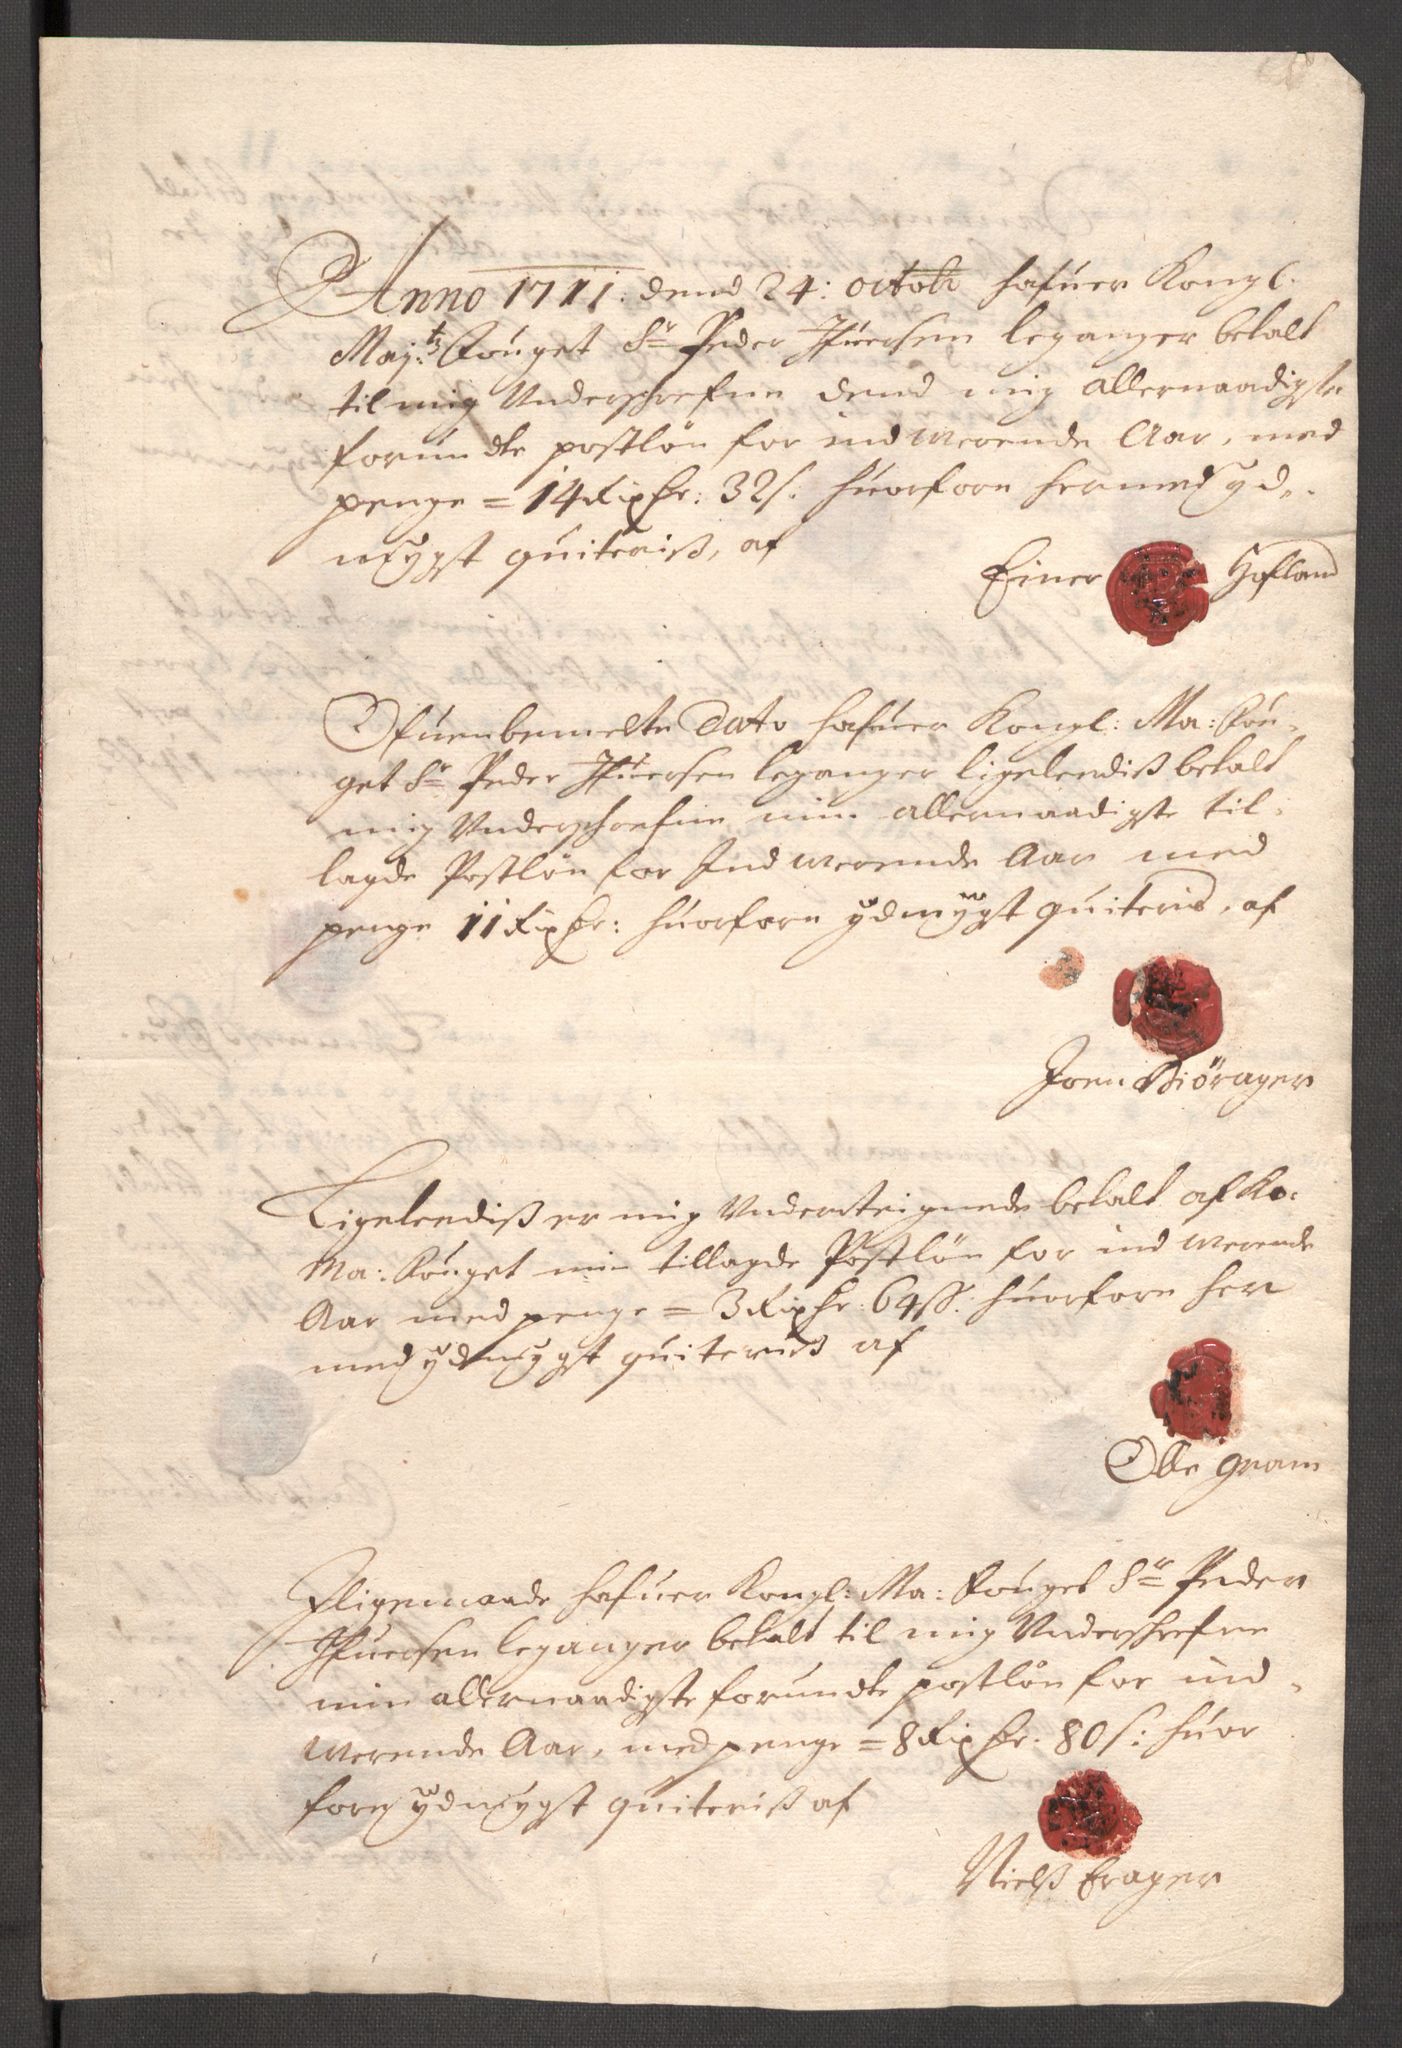 Anno 1711: dend 24: octobr hafuer Kongl.
Maj:ts Fouget Sr Peder Ifuersen leganger betalt
til mig Underschrefne dend mig allernaadigste
forundte postløn for indwerende Aar, med
penge = 14 Rixdr: 32 s: huorfore hermed yd-
mygst quiteriß, af
Einer Hofland
Ofuenbemelte Dato hafuer Kongl: Ma: Fou-
get Sr Peder Ifuersen leganger ligelendiß betalt
mig Underschrefne min allernaadigste til-
lagde Postløn for Indwerende Aar med
penge 11 Rixdr: huorfore ydmygst quiteris, af
Joen Biörager
Ligelendiß er mig Underteignede betalt af Ko:
Ma: Fouget min tillagde Postløn for indwerende
Aar med penge = 3 Rixdr: 64 ss: huorfore her
med ydmygst quiteriß af
Olle gram
Iligemaade hafuer Kongl: Ma: Fouget Sr Peder
Ifuersen leganger betalt til mig Underschrefne
min allernaadigste forundte postløn for ind-
werende Aar, med penge = 8 Rixdr: 80 s: huor
fore ydmygst quiteriß af
Nielß Erager